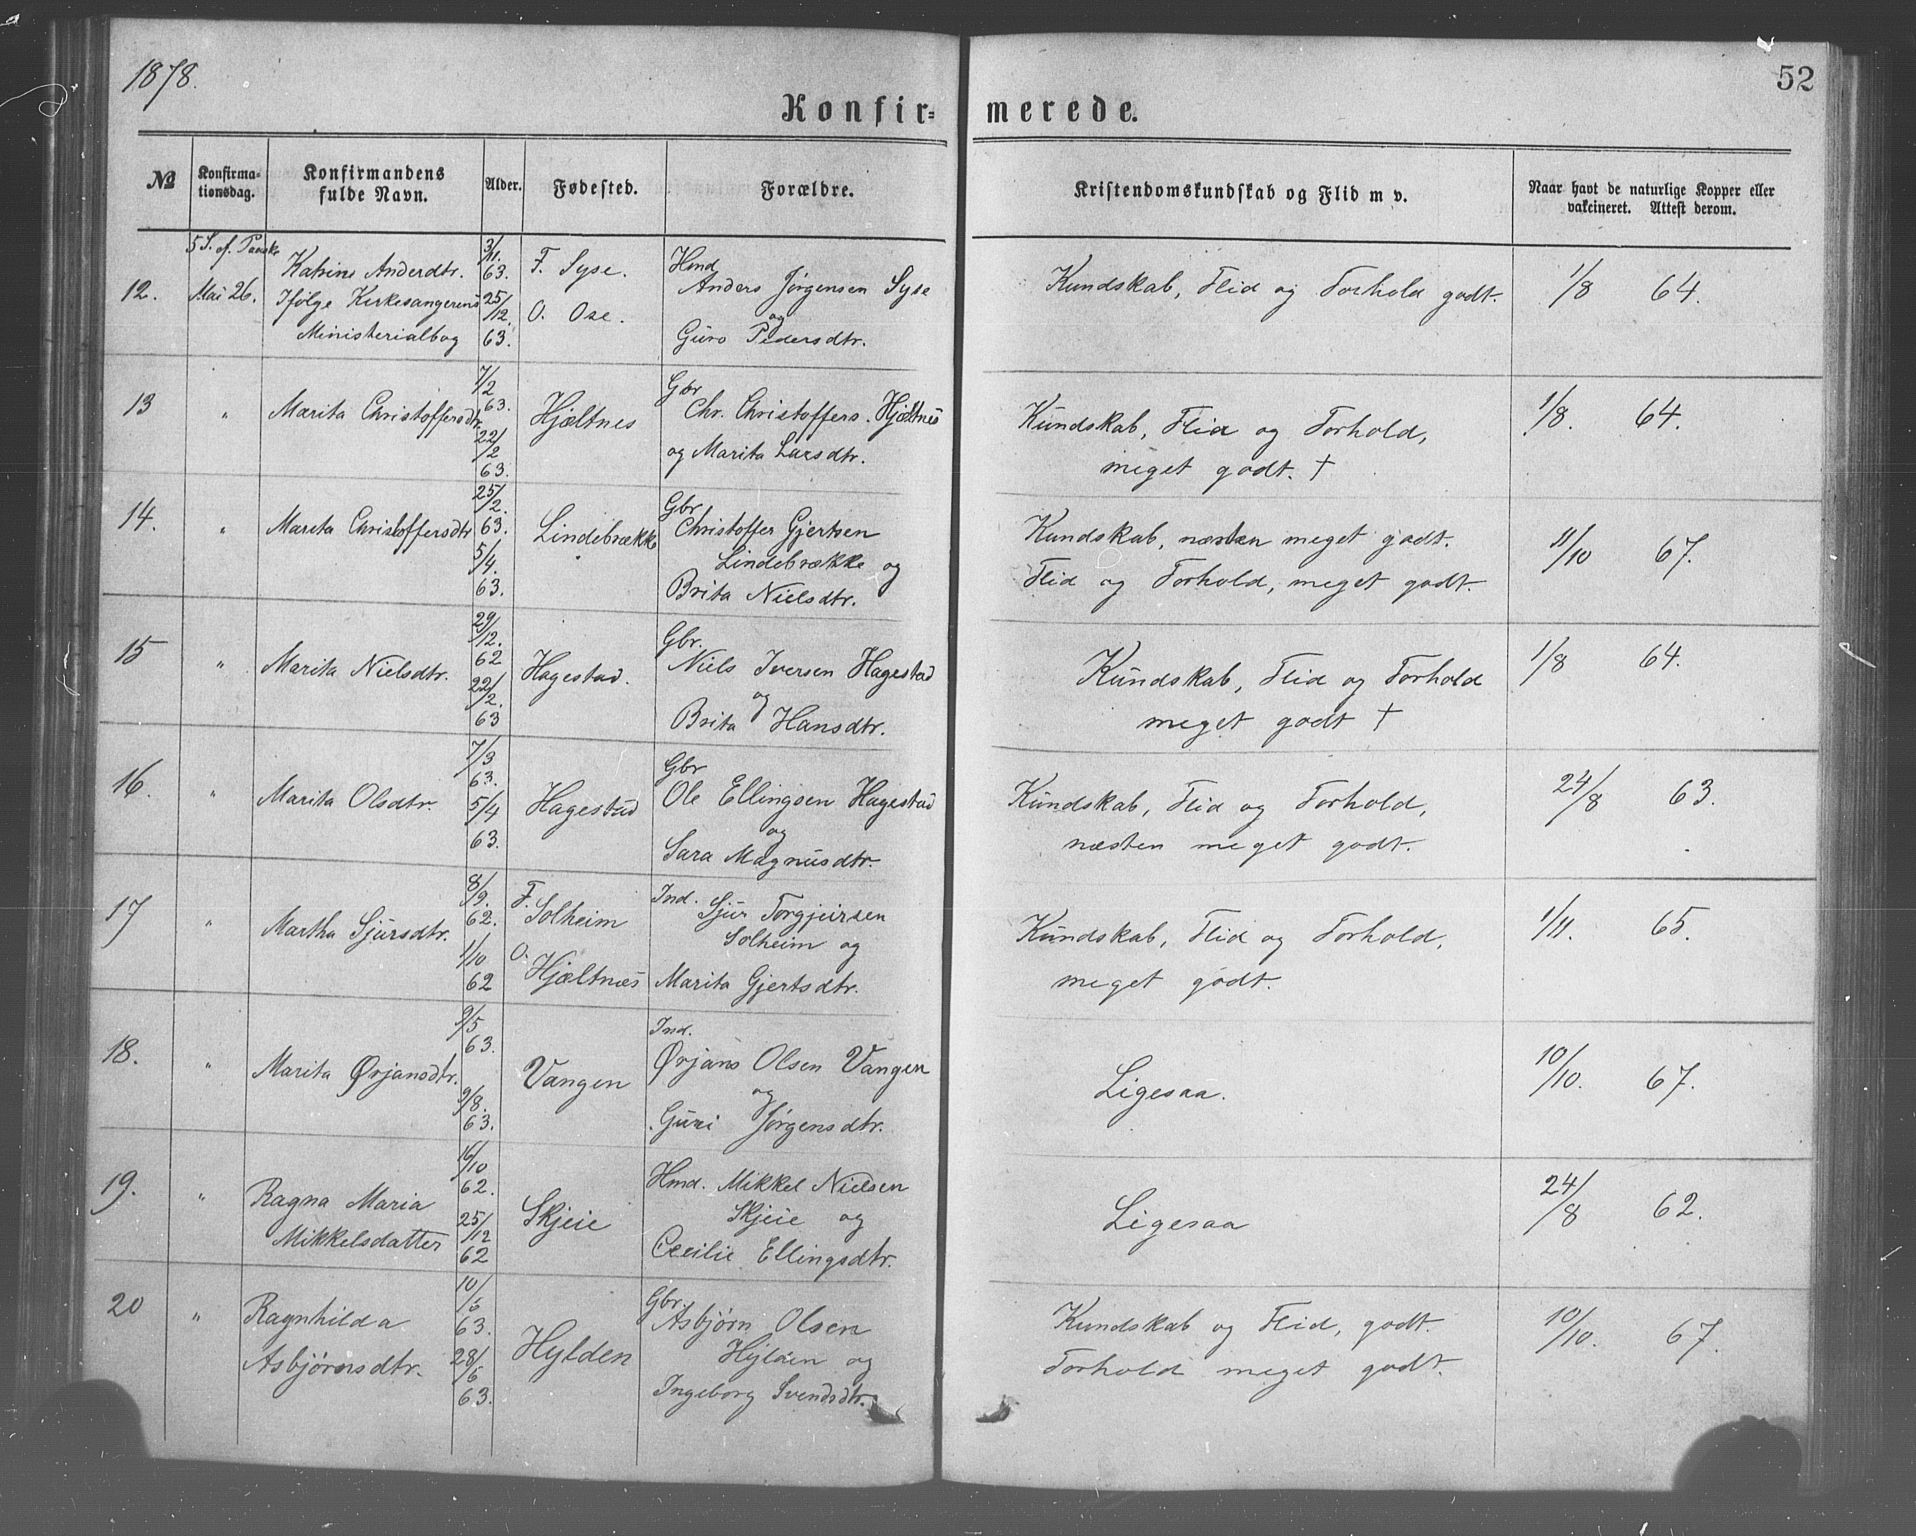 1878.
52
Konfir=
merede.
№
Konfirma-
tionsdag.
Konfirmandens
fulde Navn.
Alder.
Fødested.
Forældre.
Kristendomskundskab og Flid m v.
Naar havt de naturlige Kopper eller
vakcineret. Attest derom.
5 S. ef. Paaske
12.
Mai 26.
Katrine Andersdtr.
Ifølge Kirkesangerens
Ministerialbog
3/11.
63.
25/12.
63.
F. Syse.
O. Ose.
Hmd
Anders Jørgensen Syse
og
Guro Pedersdtr.
Kundskab, Flid og Forhold godt.
1/8 64.
13
"
Marita Christoffersdtr.
7/2
63.
22/2
63.
Hjæltnes
Gbr
Chr. Christoffers. Hjæltnes
og Marita Larsdtr.
Kundskab, Flid og Forhold,
meget godt. †
1/8. 64.
14.
"
Marita Christoffersdtr
25/2.
63.
5/4.
63.
Lindebrække
Gbr
Christoffer Gjertsen
Lindebrække og
Brita Nielsdtr.
Kundskab, næsten meget godt.
Flid og Forhold, meget godt.
11/10 67.
15
"
Marita Nielsdtr.
29/12.
62
22/2.
63
Hagestad.
Gbr.
Niels Iversen Hagestad
og
Brita Hansdtr.
Kundskab, Flid og Forhold
meget godt †
1/8 64.
16.
"
Marita Olsdtr.
7/3
63.
5/4
63.
Hagestad
Gbr
Ole Ellingsen Hagestad
og
Sara Magnusdtr.
Kundskab, Flid og Forhold,
næsten meget godt.
24/8 63.
17
"
Martha Sjursdtr.
8/9.
62.
1/10
62
F.
Solheim
O.
Hjæltnes
Ind. Sjur Torgjeirsen
Solheim og
Marita Gjertsdtr.
Kundskab, Flid og Forhold,
meget godt.
1/11. 65.
18.
"
Marita Ørjansdtr.
9/5
63.
9/8.
63.
Vangen
Ind.
Ørjans Olsen Vangen
og
Guri Jørgensdtr.
Ligesaa.
10/10. 67.
19.
"
Ragna Maria
Mikkelsdatter
16/10
62.
25/12
62
Skjeie
Hmd. Mikkel Nielsen
Skjeie og
Cecilie Ellingsdtr.
Ligesaa
24/8 62.
20
"
Ragnhilda
Asbjørnsdtr.
10/5
63.
28/6
63.
Hylden
Gbr.
Asbjørn Olsen
Hylden og
Ingeborg Svendsdtr.
Kundskab og Flid, godt.
Forhold meget godt.
10/10. 67.